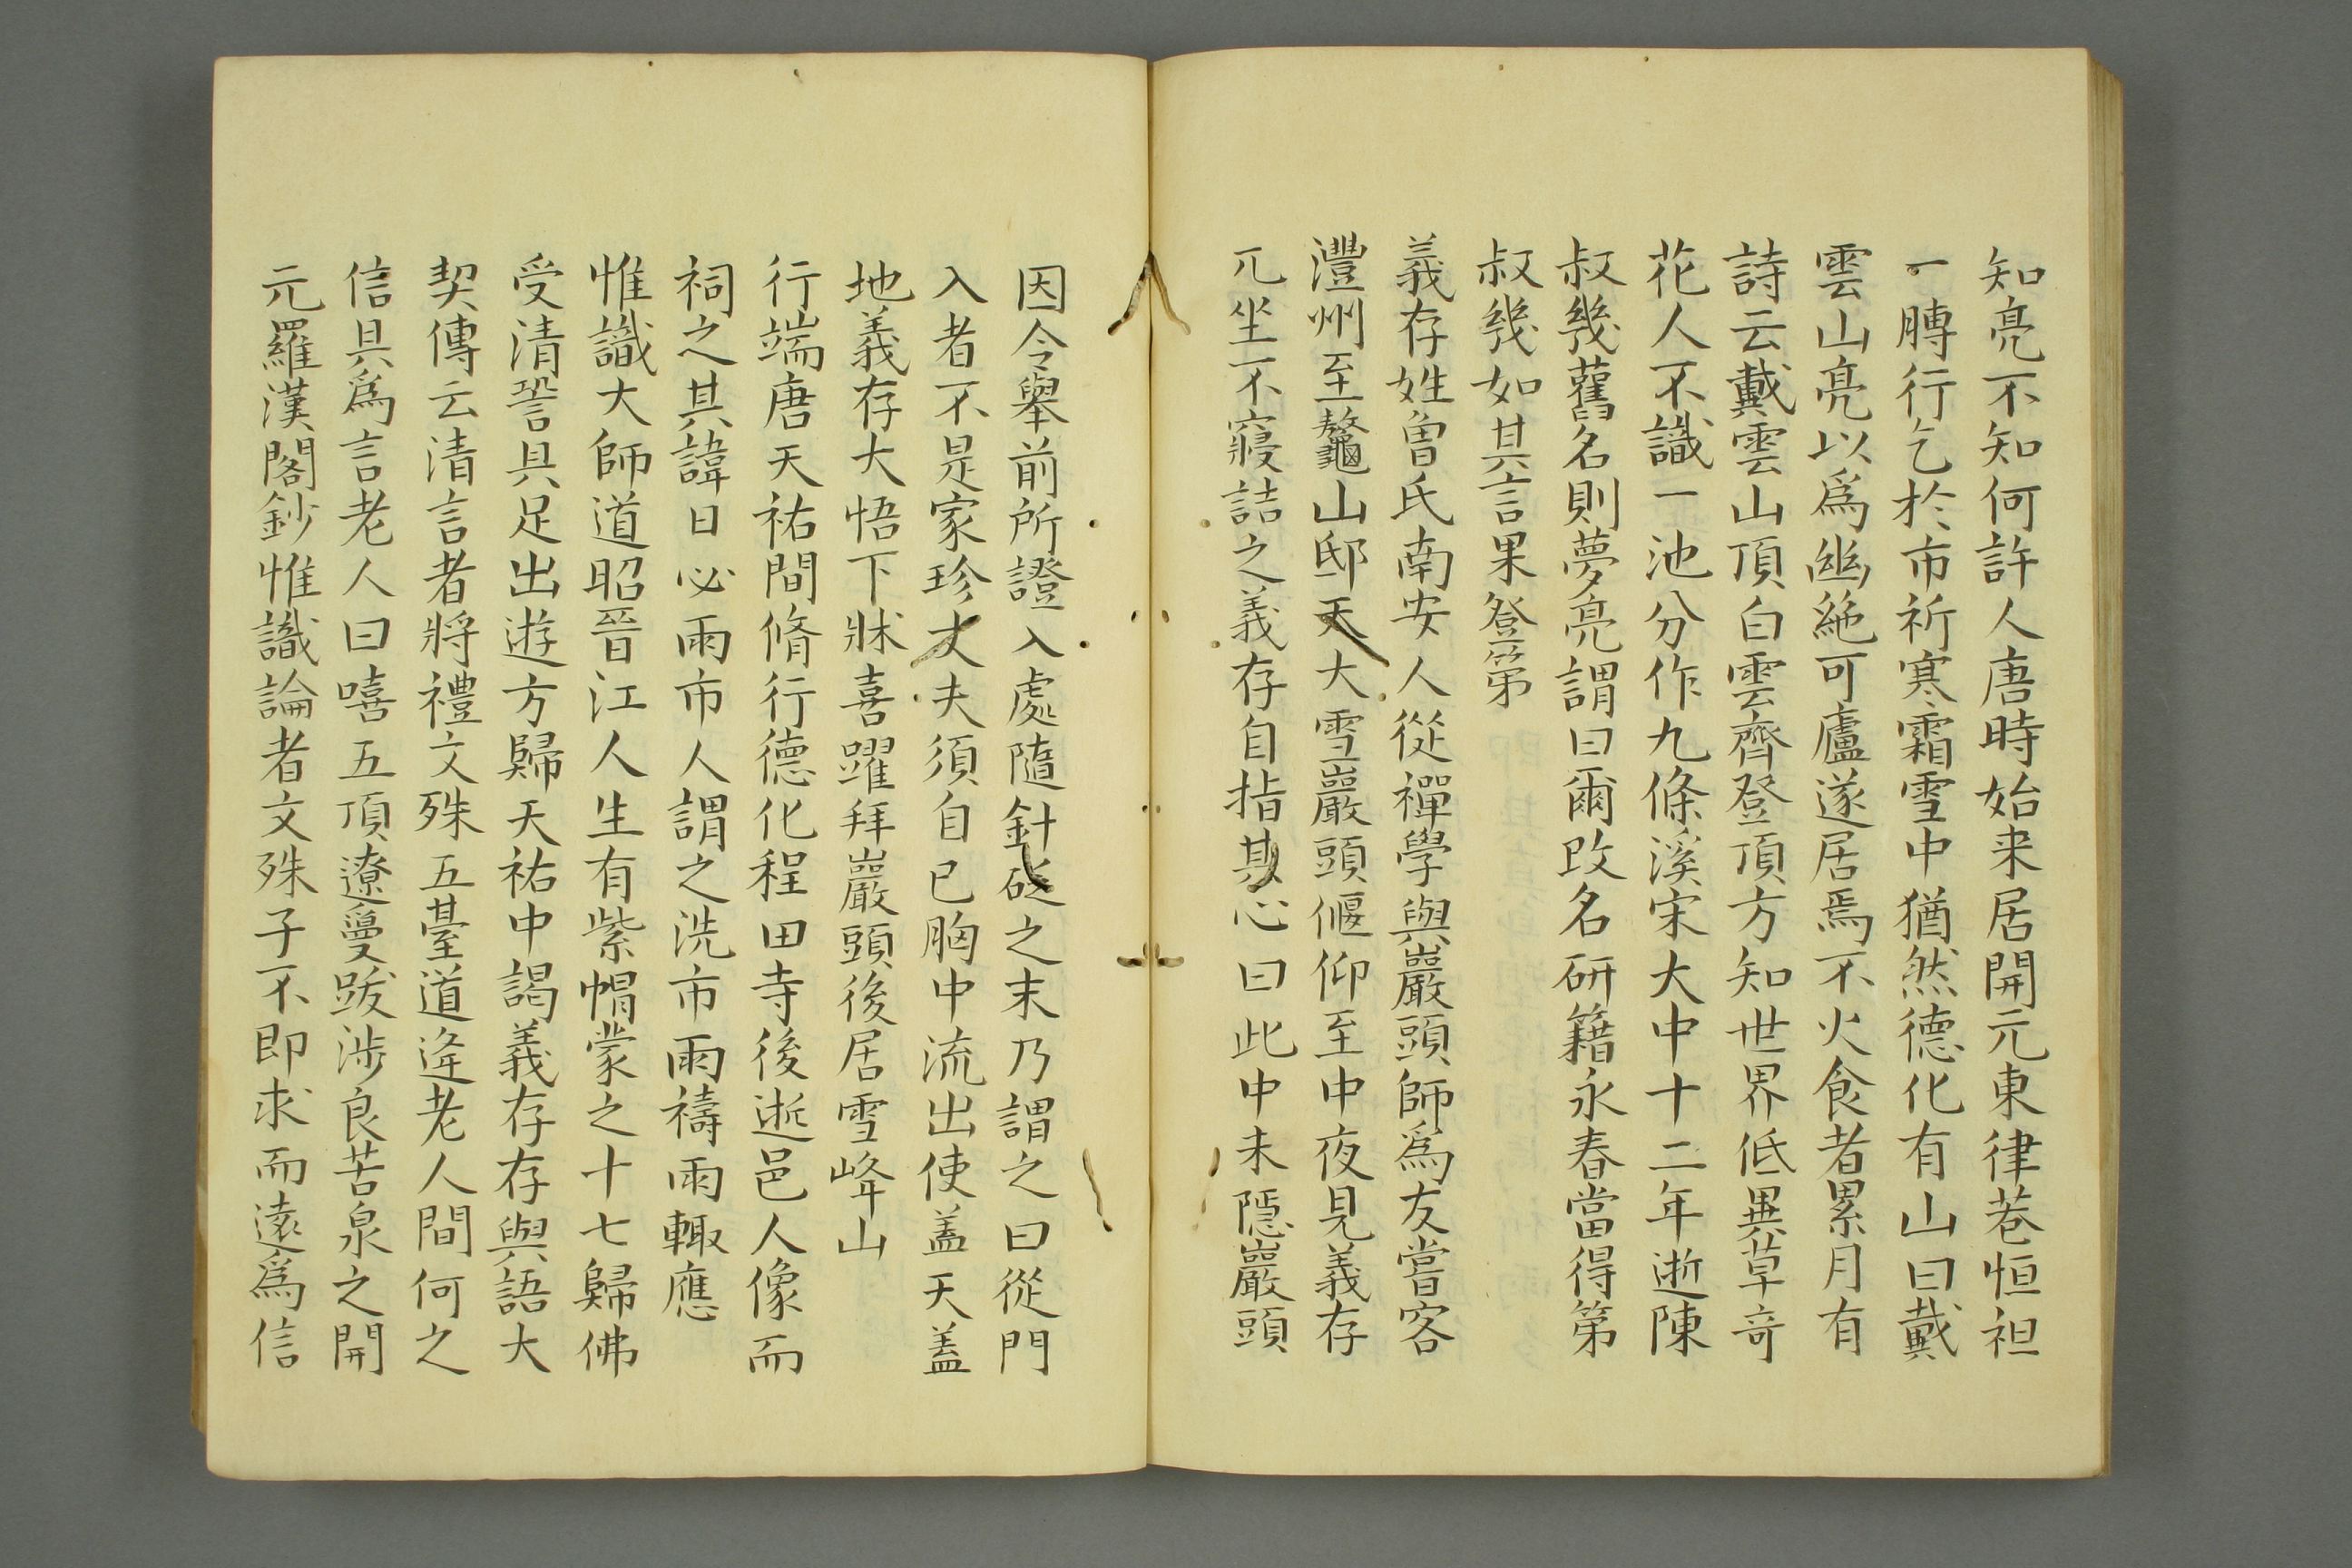 知亮不知何許人唐時始来居開元東律菴恒袒
一膊行乞於市祈寒霜雪中猶然德化有山曰戴
雲山亮以爲幽絶可廬遂居焉不火食者累月有
詩云戴雲山頂白雲齊登頂方知世界低異草奇
花人不識一池分作九條溪宋大中十二年逝陳
叔幾舊名則夢亮謂曰爾改名研籍永春當得第
叔幾如其言果登第
義存姓曾氏南安人從禪學與巖頭師爲友嘗客
澧州至鼇山邸天大雪巖頭偃仰至中夜見義存
兀坐不寢詰之義存自指其心曰此中未隱巖頭
因令舉前所證入處隨針砭之末乃謂之曰從門
入者不是家珍丈夫須自已胸中流出使蓋天蓋
地義存大悟下牀喜躍拜巖頭後居雪峰山
行端唐天祐間脩行德化程田寺後逝邑人像而
祠之其諱日必雨市人謂之洗市雨禱雨輙應
惟識大師道昭晉江人生有紫帽蒙之十七歸佛
受清㘖具足出遊方歸天祐中謁義存存與語大
契傳云清言者將禮文殊五臺道逢老人間何之
信具爲言老人曰嘻五頂遼敻跋涉良苦泉之開
元羅漢閣鈔惟識論者文殊子不即求而遠爲信